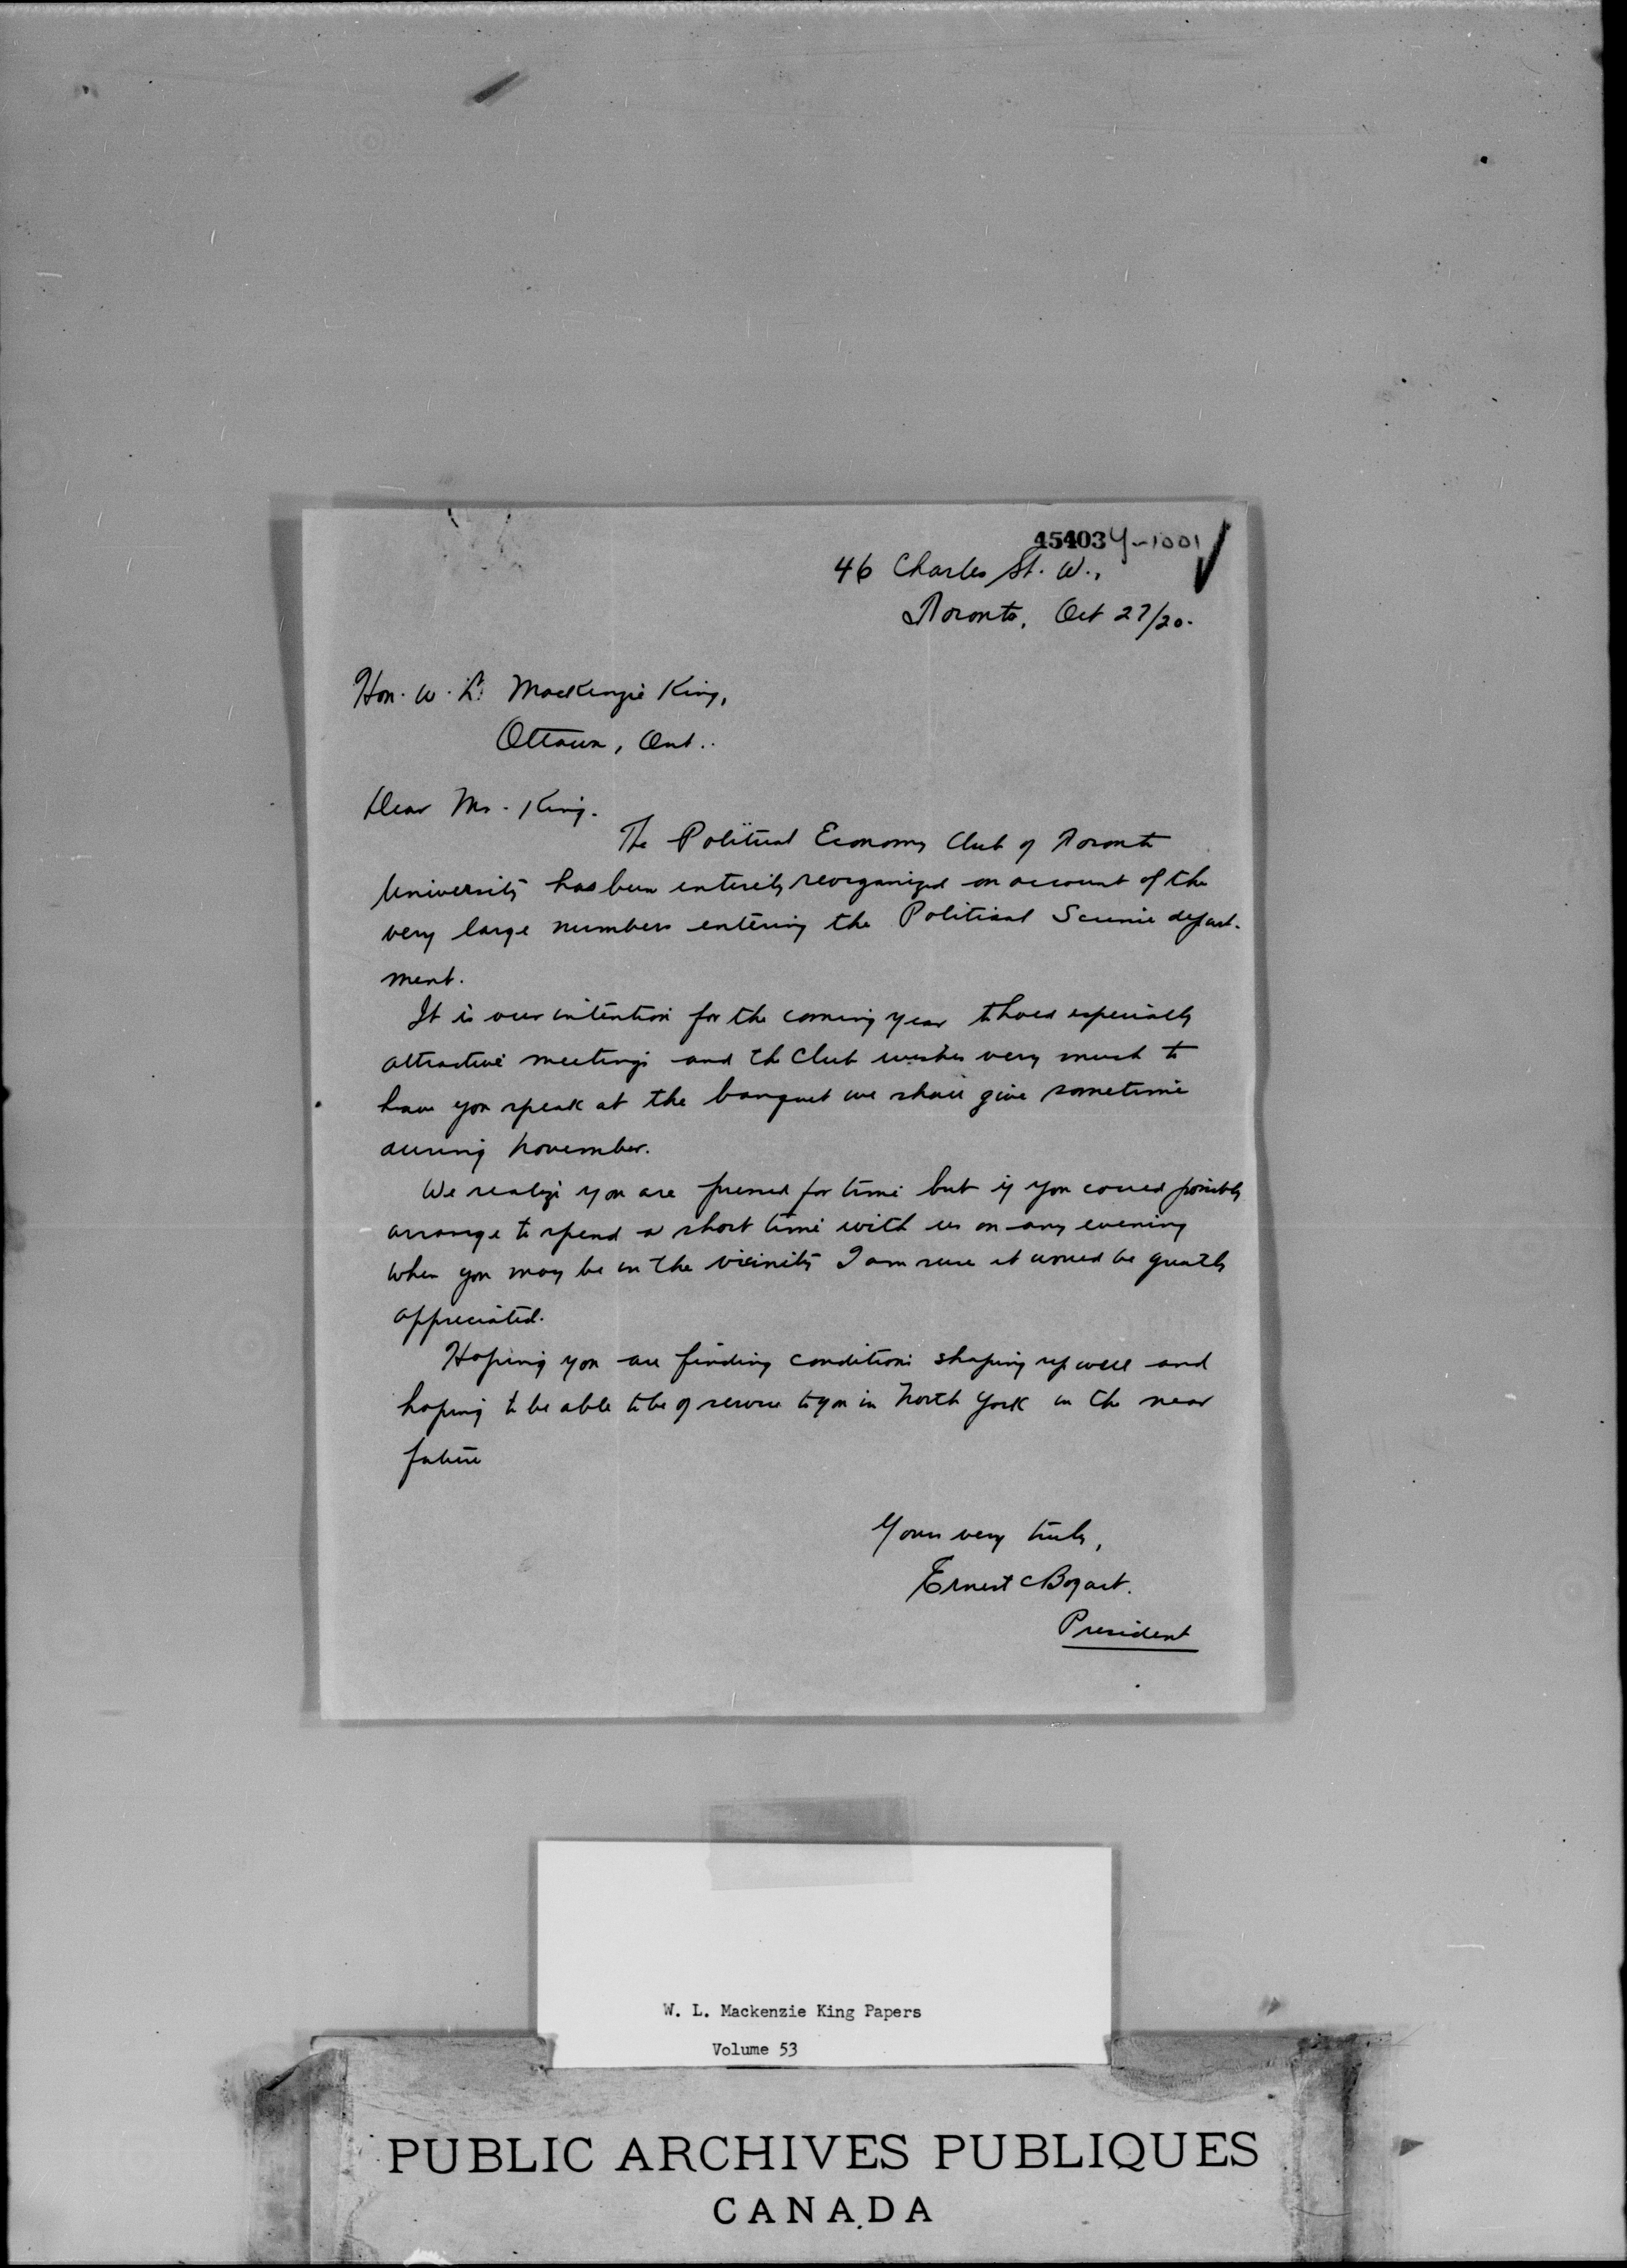 45403 Y-1001
46 Charles St. W.,
Toronto, Oct 27/20.
Hon. W. L. MacKenzie King,
Ottawa, Ont..
Dear Mr. King.
The Political Economy Club of Toronto
University has been entirely reorganized on account of the
very large numbers entering the Political Science depart-
ment.
It is our intention for the coming year to hold especially
attractive meetings and the Club wishes very much to
have you speak at the banquet we shall give sometime
during November.
We realize you are pressed for time but if you could possibly
arrange to spend a short time with us on any evening
when you may be in the vicinity I am sure it would be greatly
appreciated.
Hoping you are finding conditions shaping up well and
hoping to be able to be of service to you in North York in the near
future
Yours very truly,
Ernest C Bogart.
President
W. L. Mackenzie King Papers
Volume 53
PUBLIC ARCHIVES PUBLIQUES
CANADA